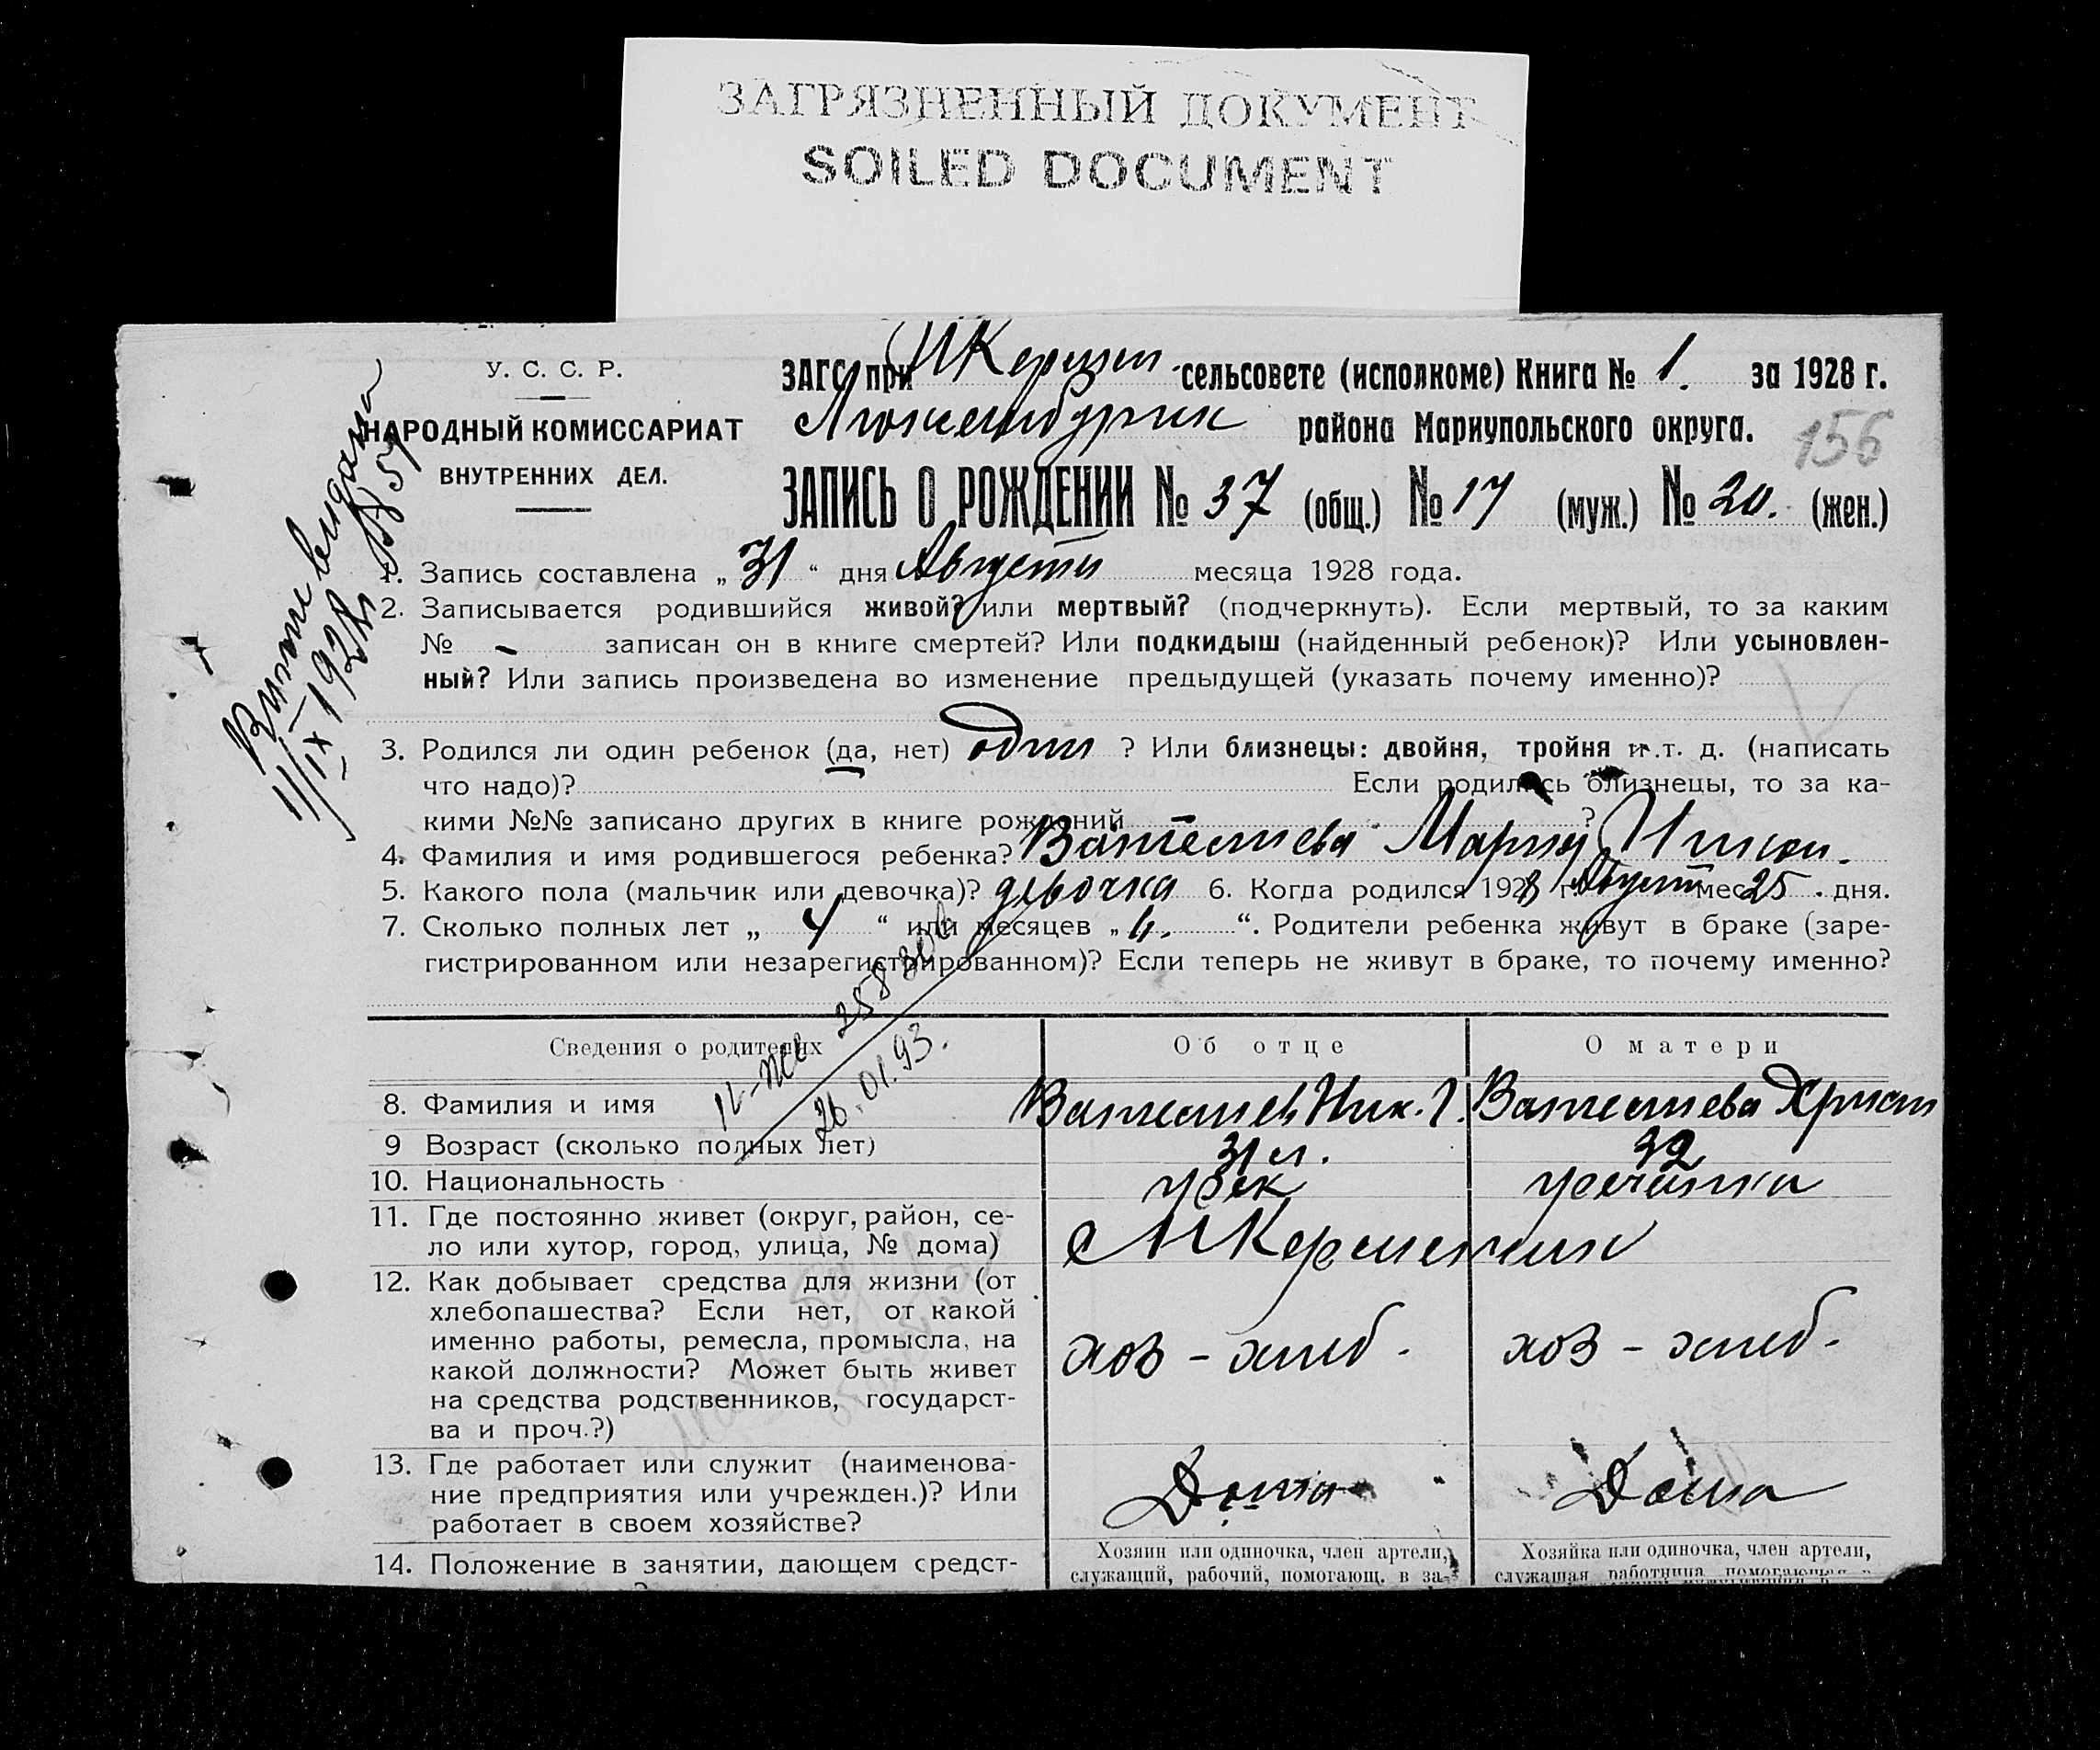 ЗАГРЯЗНЕННЫЙ ДОКУМЕНТ
SOILED DOCUMENT
У. С. С. Р.
НАРОДНЫЙ КОМИССАРИАТ
ВНУТРЕННИХ ДЕЛ.
ЗАГС при сельсовете (исполкоме) Книга № 1. за 1928 г.
района Мариупольского округа.
156
ЗАПИСЬ О РОЖДЕНИИ № 37 (общ.) № 17 (муж.) № 20. (жен.)
1. Запись составлена „ 31 “ дня Августа месяца 1928 года.
2. Записывается родившийся живой? или мертвый? (подчеркнуть). Если мертвый, то за каким
№ - записан он в книге смертей? Или подкидыш (найденный ребенок)? Или усыновлен-
ный? Или запись произведена во изменение предыдущей (указать почему именно)?
3. Родился ли один ребенок (да, нет) один ? Или близнецы: двойня, тройня и т. д. (написать
что надо)? Если родились близнецы, то за ка-
кими №№ записано других в книге рождений ?
4. Фамилия и имя родившегося ребенка? Мария
5. Какого пола (мальчик или девочка)? девочка 6. Когда родился 1928 г. Август мес. 25 дня.
7. Сколько полных лет „ 4 “ или месяцев „ 4. “. Родители ребенка живут в браке (заре-
гистрированном или незарегистрированном)? Если теперь не живут в браке, то почему именно?
26.01.93.
Сведения о родителях Об отце О матери
8. Фамилия и имя
9 Возраст (сколько полных лет) 31 л. 32
10. Национальность грек гречанка
11. Где постоянно живет (округ, район, се-
ло или хутор, город, улица, № дома)
12. Как добывает средства для жизни (от
хлебопашества? Если нет, от какой
именно работы, ремесла, промысла, на
какой должности? Может быть живет
на средства родственников, государст-
ва и проч.?)
хоз - хлеб. хоз - хлеб.
13. Где работает или служит (наименова-
ние предприятия или учрежден.)? Или
работает в своем хозяйстве?
Дома Дома
14. Положение в занятии, дающем средст-
Хозяин или одиночка, член артели,
служащий, рабочий, помогающ. в за-
Хозяйка или одиночка, член артели,
служащая работница помогающая